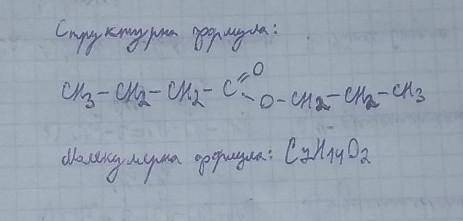 Структурна формула:
CH3-CH2-CH2-C=O
O-CH2-CH2-CH3
Молекулярна формула: C7H14O2